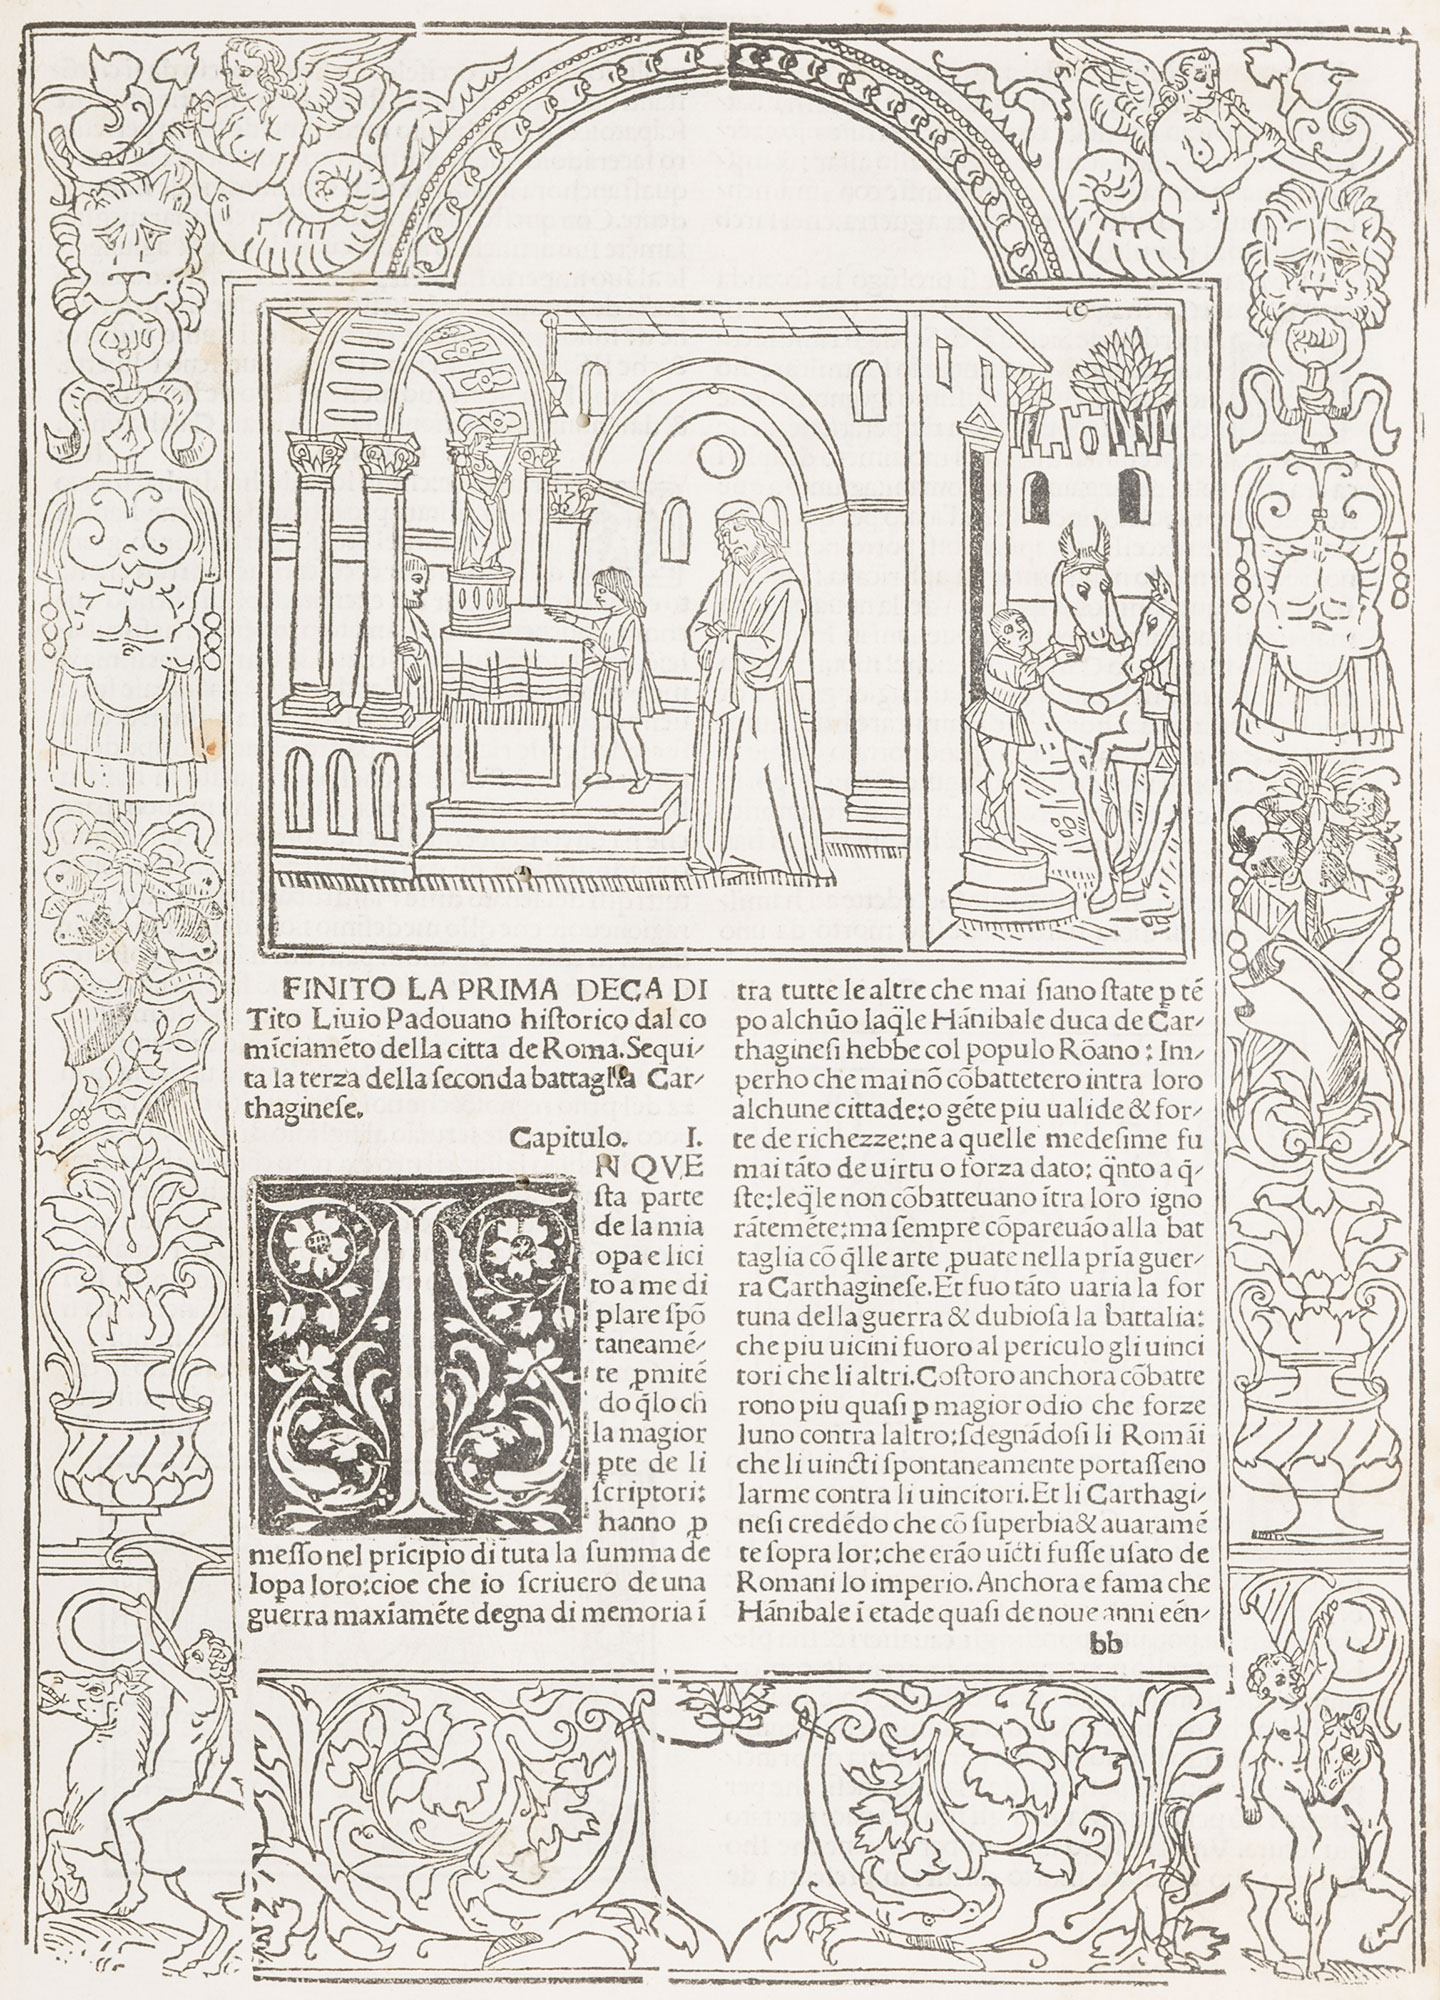 FINITO LA PRIMA DECA DI
Tito Liuio Padouano hiſtorico dal co
mīciamēto della citta de Roma. Sequi⸗
ta la terza della ſeconda battaglia Car⸗
thagineſe.
Capitulo. I.
IN QVE
ſta parte
de la mia
opa e lici
to a me di
plare ſpō
taneamē⸗
te ꝓmitē
do q̄lo ch
la magior
ꝑte de li
ſcriptori:
hanno ꝓ
meſſo nel prīcipio di tuta la ſumma de
lopa loro: cioe che io ſcriuero de una
guerra maxīamēte degna di memoria ī
tra tutte le altre che mai ſiano ſtate ꝑ tē
po alchūo laq̄le Hānibale duca de Car⸗
thagineſi hebbe col populo Rōano: Im⸗
perho che mai nō cōbattetero intra loro
alchune cittade: o gēte piu ualide & for⸗
te de richezze: ne a quelle medeſime fu
mai tāto de uirtu o forza dato: q̄nto a q̄⸗
ſte: leq̄le non cōbatteuano ītra loro igno
rātemēte: ma ſempre cōpareuāo alla bat
taglia cō q̄lle arte ꝓuate nella prīa guer⸗
ra Carthagineſe. Et fuo tāto uaria la for
tuna della guerra & dubioſa la battalia:
che piu uicini fuoro al periculo gli uinci
tori che li altri. Coſtoro anchora cōbatte
rono piu quaſi ꝑ magior odio che forze
luno contra laltro: ſdegnādoſi li Romāi
che li uincti ſpontaneamente portaſſeno
larme contra li uincitori. Et li Carthagi⸗
neſi credēdo che cō ſuperbia & auaramē
te ſopra lor: che erāo uīcti fuſſe uſato de
Romani lo imperio. Anchora e fama che
Hānibale ī etade quaſi de noue anni eēn⸗
bb